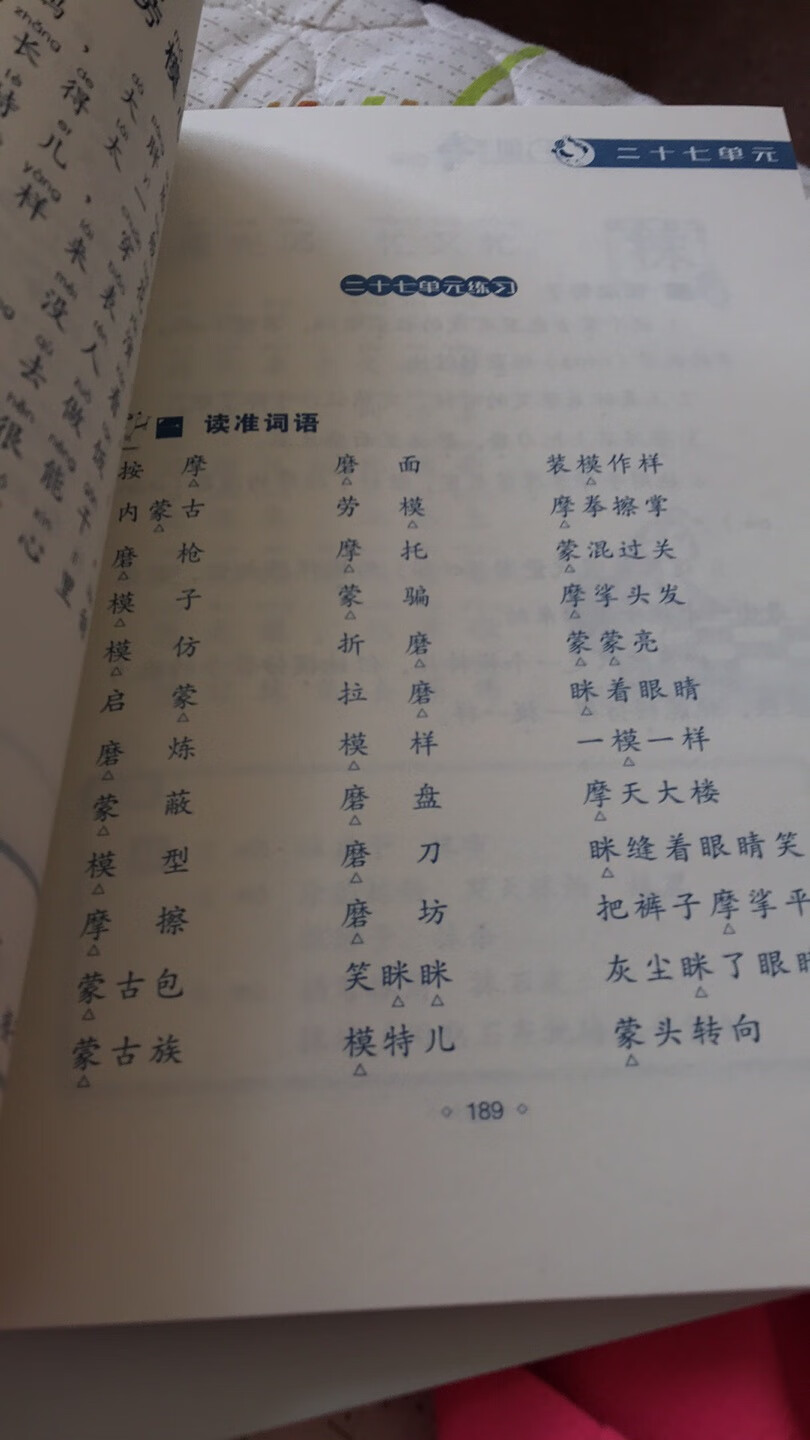 二十七单元
二十七单元练习
一 读准词语
按摩 磨面 装模作样
内蒙古 劳模 摩拳擦掌
磨枪 摩托 蒙混过关
模子 蒙骗 摩挲头发
模仿 折磨 蒙蒙亮
启蒙 拉磨 眯着眼睛
磨炼 模样 一模一样
蒙蔽 磨盘 摩天大楼
模型 磨刀 眯缝着眼睛笑
摩擦 磨坊 把裤子摩挲平
蒙古包 笑眯眯 灰尘眯了眼睛
蒙古族 模特儿 蒙头转向
189